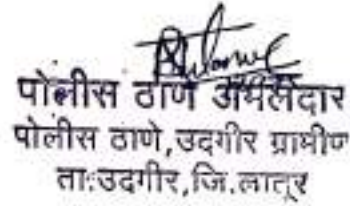 पोलीस ठाणे अंमलदार
पोलीस ठाणे,उदगीर ग्रामीण
ता:उदगीर,जि.लातूर